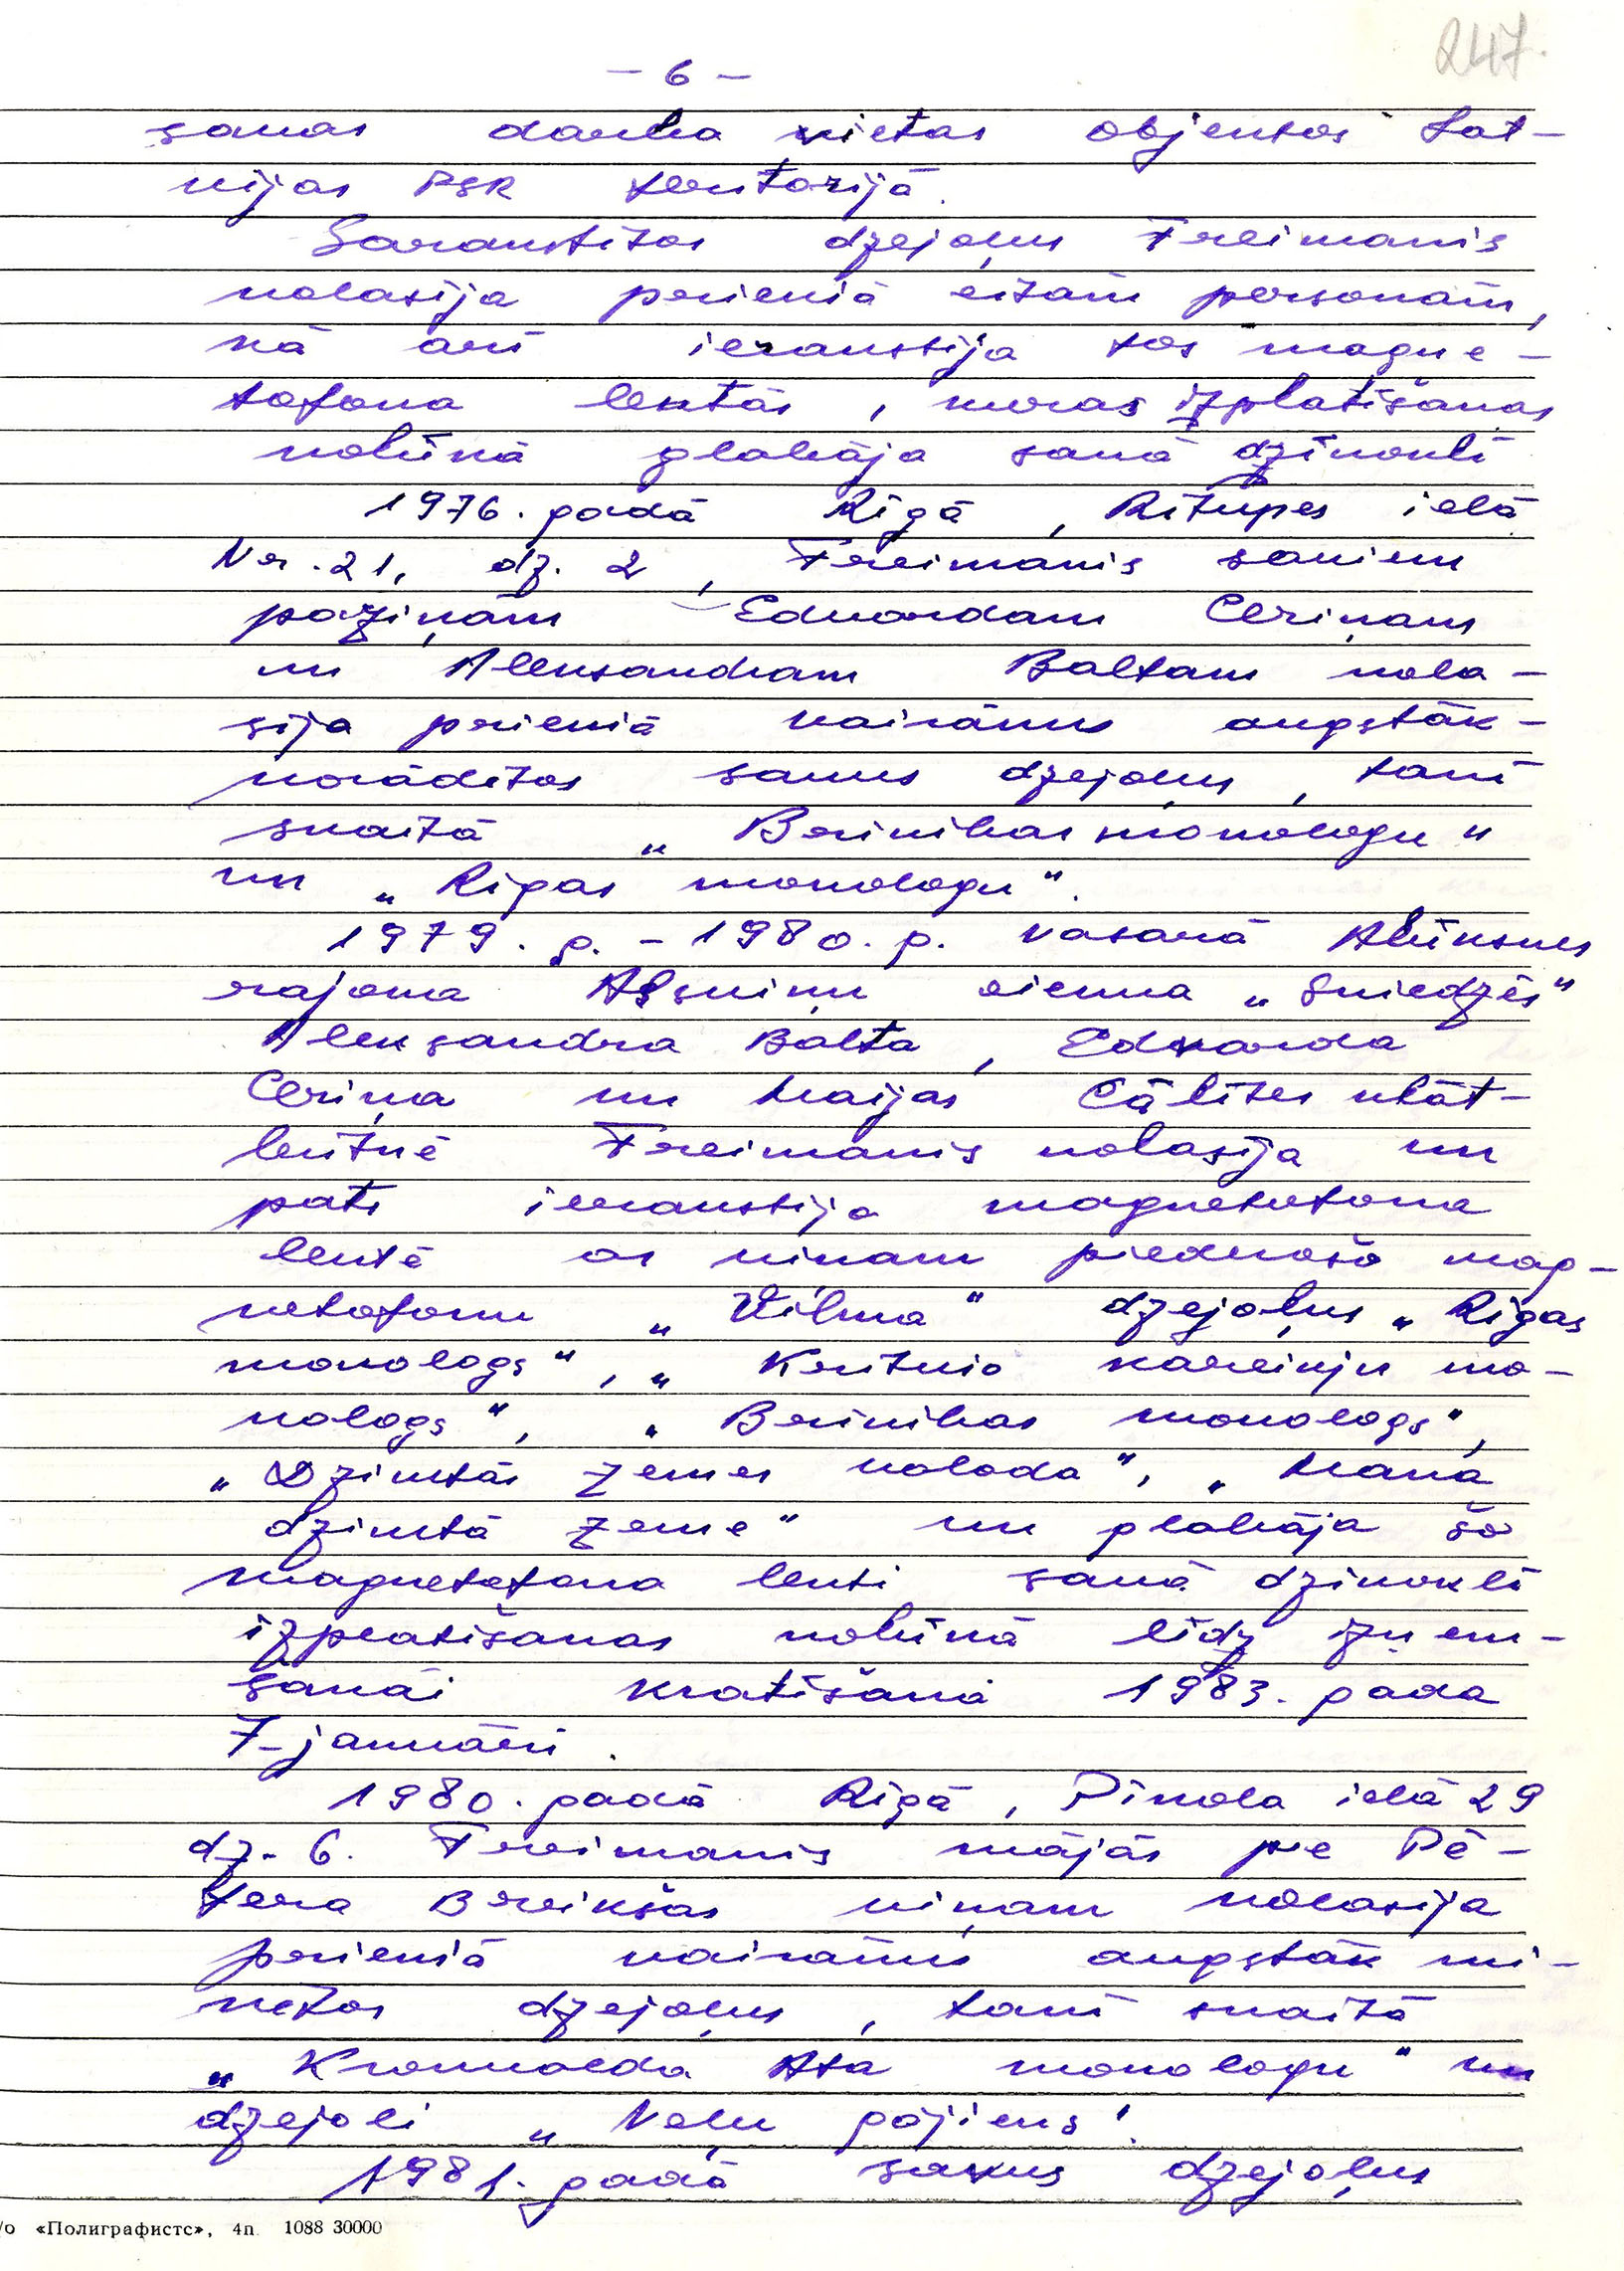 247.
- 6 -
šanas darba vietas objektos Lat-
vijas PSR teritorijā.
Sarakstītos dzejoļus Freimanis
nolasīja priekšā citām personām,
kā arī ierakstīja tos magne-
tofona lentās, kuras izplatīšanas
nolūkā glabāja savā dzīvoklī
1976. gadā Rīgā, Rītupes ielā
Nr. 21, dz. 2, Freimanis saviem
paziņām Eduardam Ceriņam
un Aleksandram Baltam nola-
sīja priekšā vairākus augstāk-
norādītos savus dzejoļus, tani
skaitā „Brīvības monologu"
un „Rīgas monologu".
1979. g. - 1980. g. vasarā Alūksnes
rajona Alsviķu ciema „Sniedzēs"
Aleksandra Balta, Edvarda
Ceriņa un Maijas Cālītes klāt-
būtnē Freimanis nolasīja un
pats ierakstīja magnetofona
lentē ar viņam piederošo mag-
netofonu „Vilma" dzejoļus „Rīgas
monologs", „Kritušo kareivju mo-
nologs", „Brīvības monologs",
„Dzimtās zemes valoda", „Mana
dzimtā zeme" un glabāja šo
magnetofona lenti savā dzīvoklī
izplatīšanas nolūkā līdz izņem-
šanai kratīšanā 1983. gada
7. janvārī.
1980. gadā Rīgā, Dīķola ielā 29
dz. 6. Freimanis mājās pie Pē-
tera Breikšas viņam nolasīja
priekšā vairākus augstāk mi-
nētos dzejoļus, tani skaitā
„Kronvalda Ata monologu" un
dzejoli „Veļu gājiens".
1981. gadā savus dzejoļus
/о «Полиграфистс», 4п 1088 30000